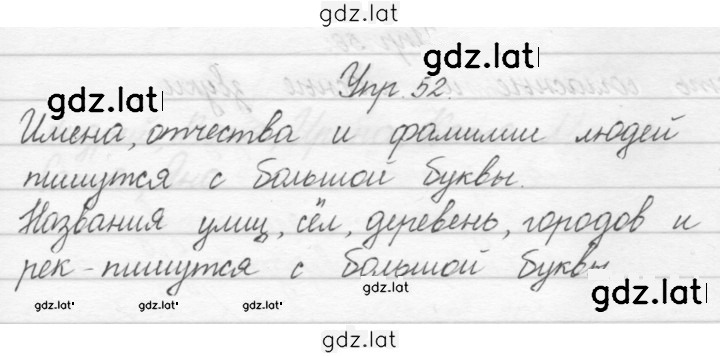 gdz.lat
gdz.lat
Упр. 52.
gdz.lat
Имена, отчества и фамилии людей
пишутся с большой буквы.
Названия улиц, сёл, деревень, городов и
рек - пишутся с большой буквы
gdz.lat
gdz.lat
gdz.lat gdz.lat gdz.lat
gdz.lat